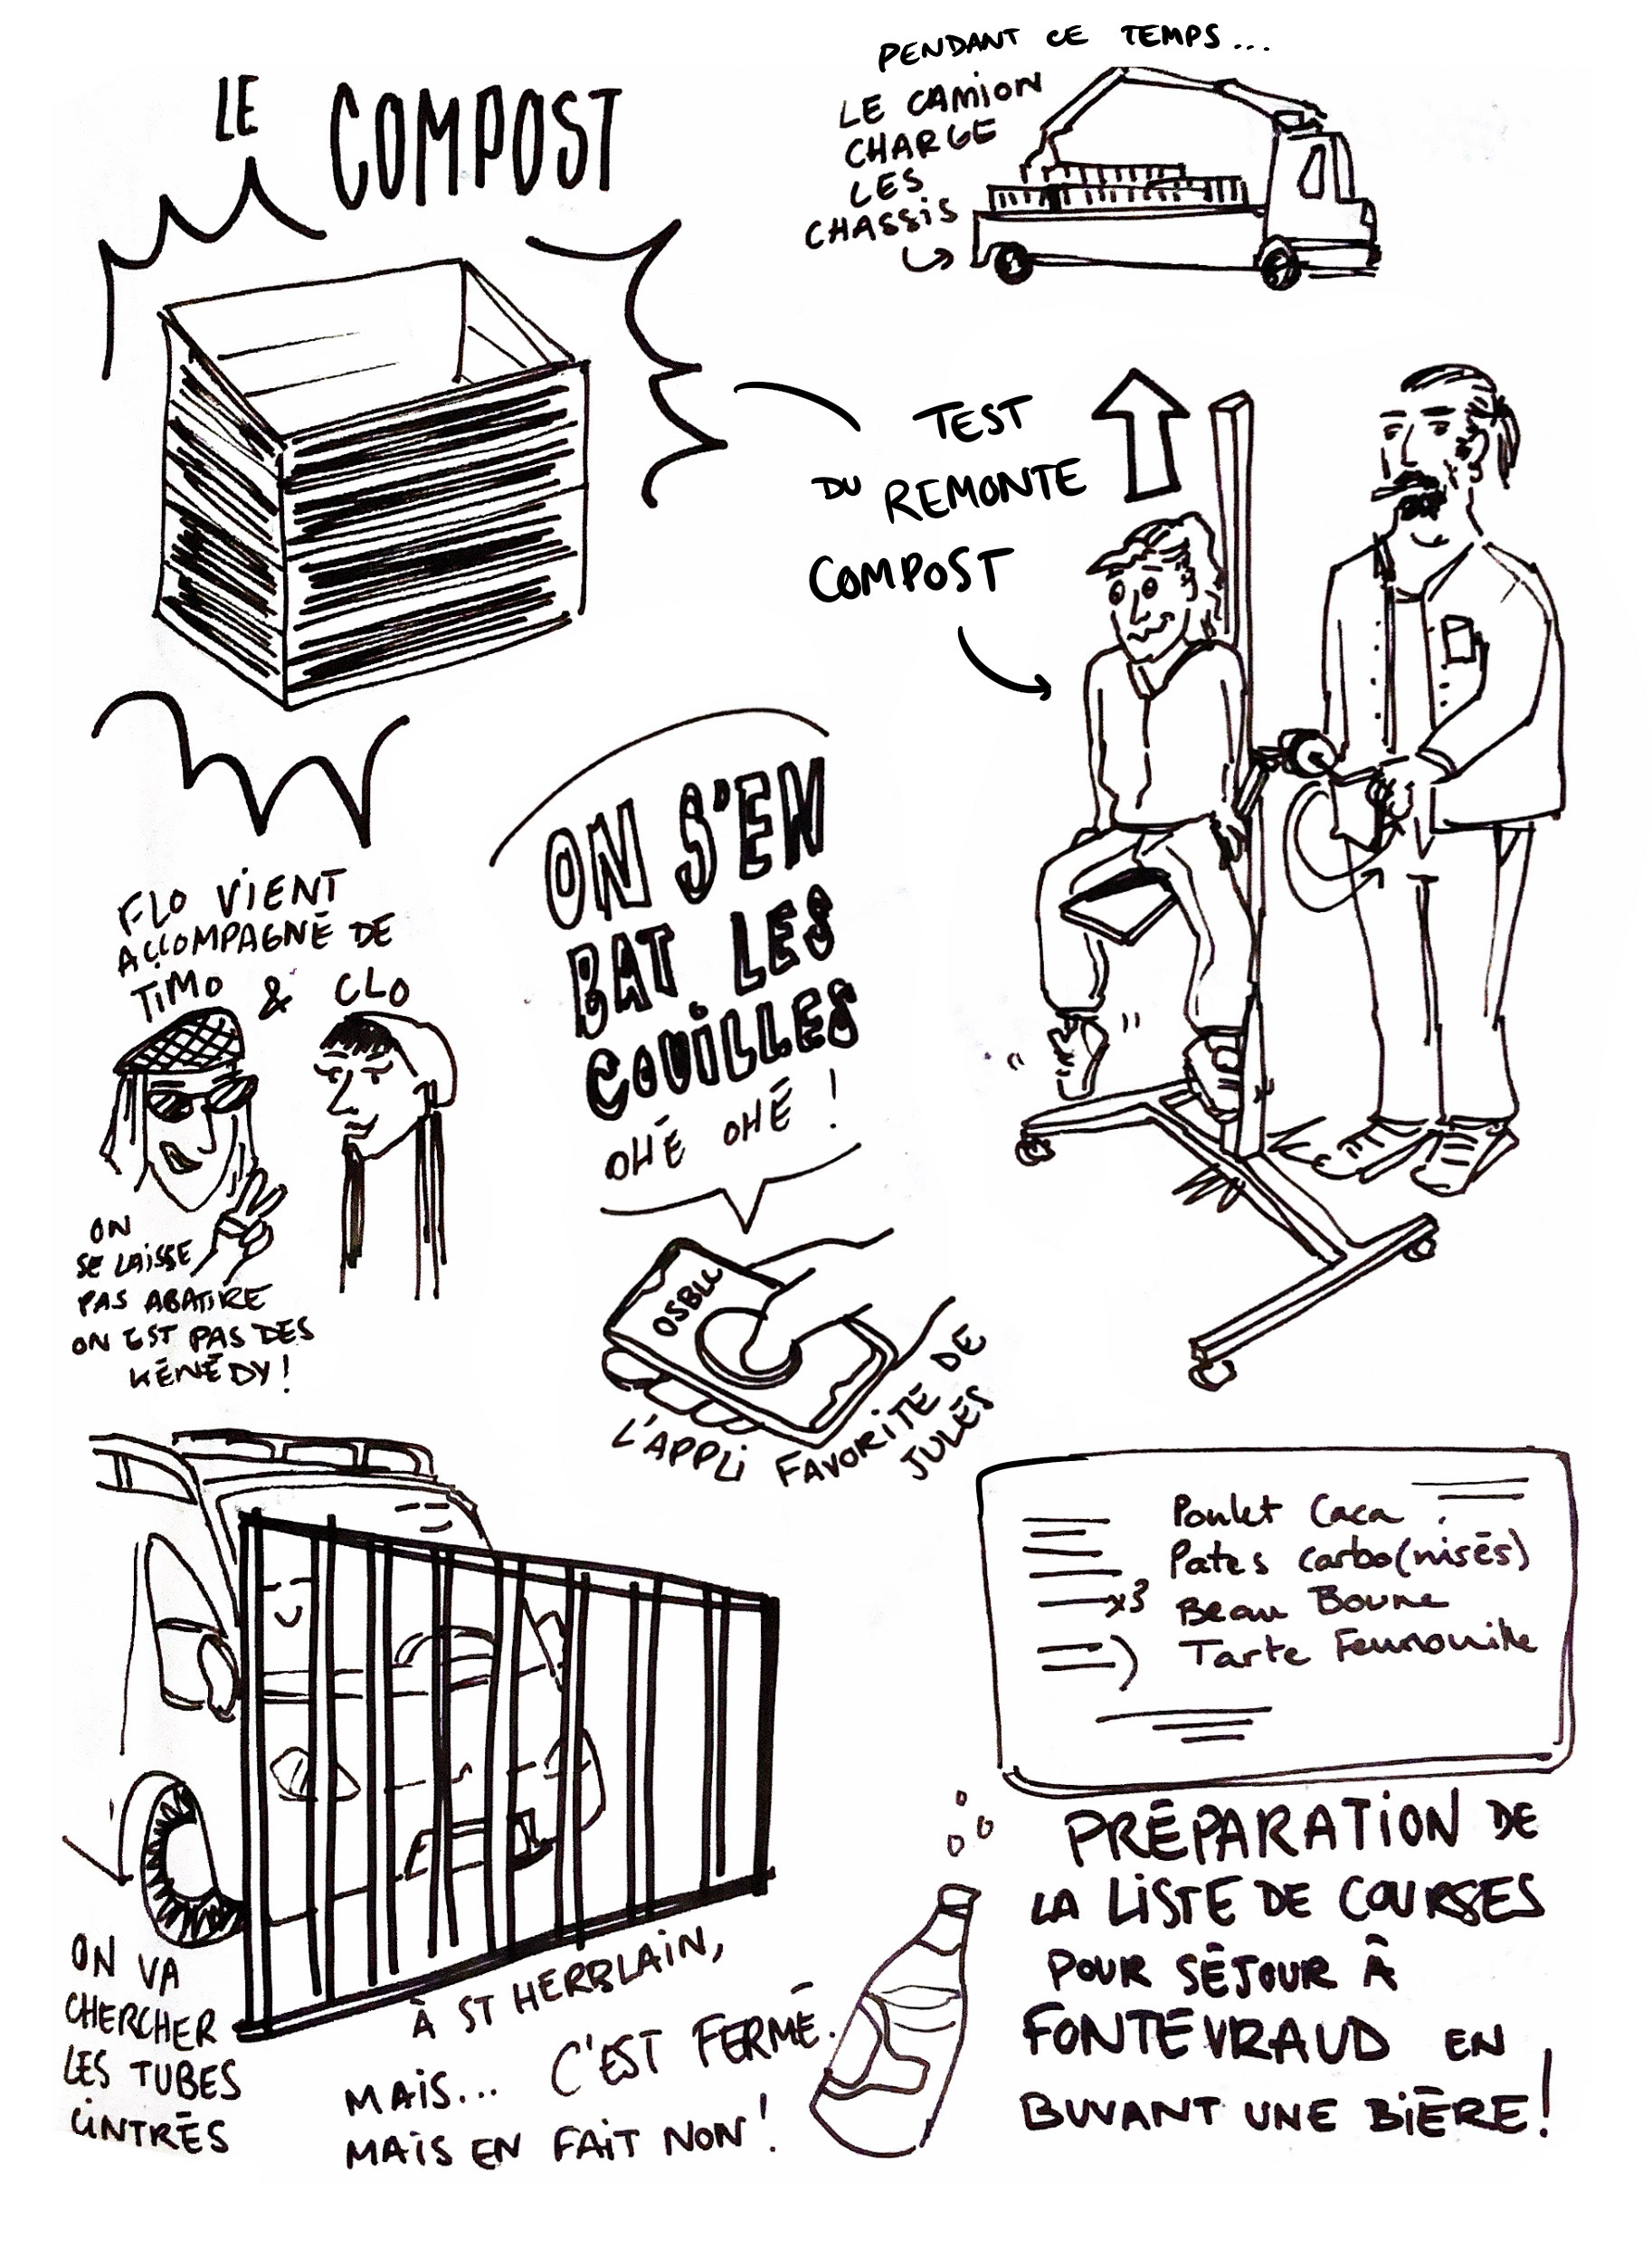 LE COMPOST
PENDANT CE TEMPS...
LE CAMION
CHARGE
LES
CHASSIS
TEST
DU REMONTE
COMPOST
FLO VIENT
ACCOMPAGNÉ DE
TIMO & CLO
ON
SE LAISSE
PAS ABATIRE
ON EST PAS DES
KÉNÉDY!
ON S'EN
BAT LES
COUILLES
OHÉ OHÉ !
OSBLC
L'APPLI FAVORITE DE
JULES
Poulet Caca
Pates carbo(nisés)
x3 Beau Boune
Tarte
PRÉPARATION DE
LA LISTE DE COURSES
POUR SÉJOUR À
FONTEVRAUD EN
BUVANT UNE BIÈRE!
ON VA
CHERCHER
LES TUBES
CINTRÉS
À ST HERBLAIN,
MAIS... C'EST FERMÉ.
MAIS EN FAIT NON!